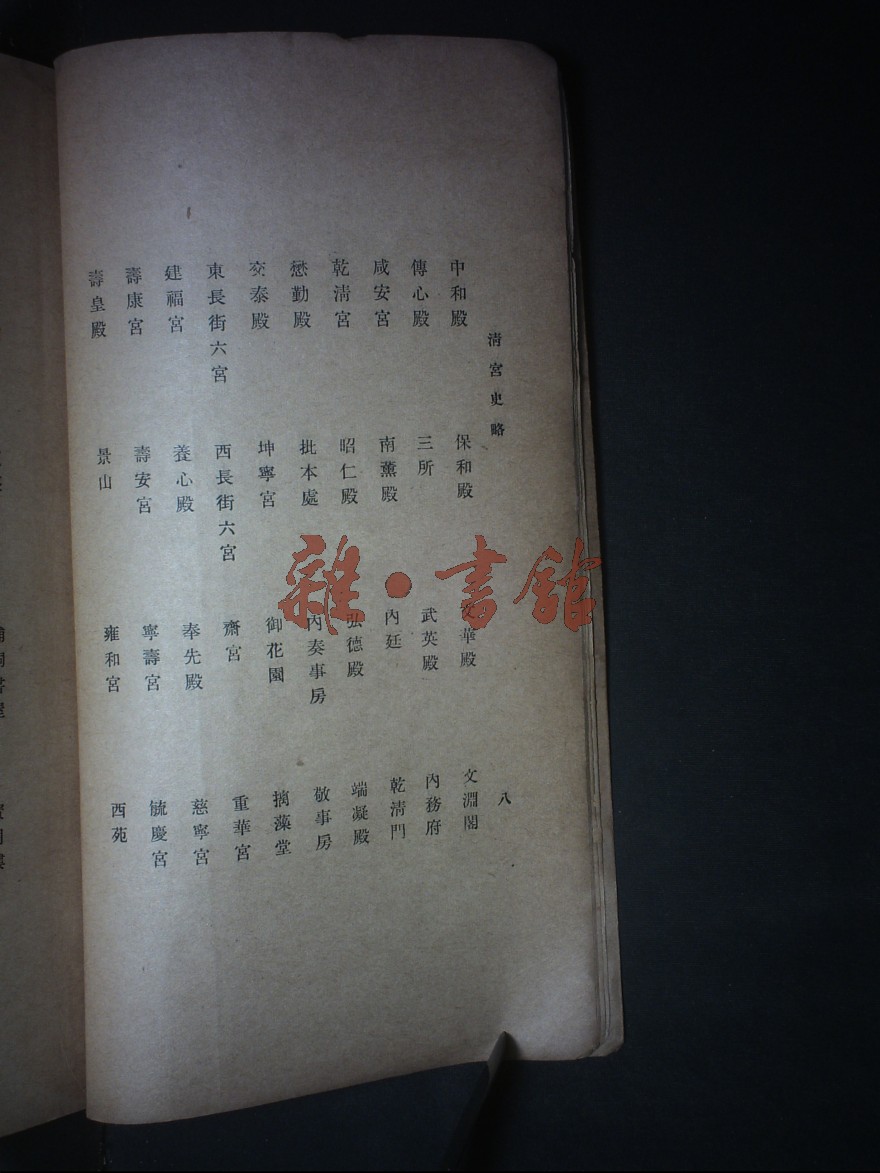 清宮史略 八
中和殿 保和殿 文華殿 文淵閣
傳心殿 三所 武英殿 內務府
咸安宮 南薰殿 內廷 乾清門
乾清宮 昭仁殿 弘德殿 端凝殿
懋勤殿 批本處 內奏事房 敬事房
交泰殿 坤寧宮 御花園 摛藻堂
東長街六宮 西長街六宮 齋宮 重華宮
建福宮 養心殿 奉先殿 慈寧宮
壽康宮 壽安宮 寧壽宮 毓慶宮
壽皇殿 景山 雍和宮 西苑
雜·書館